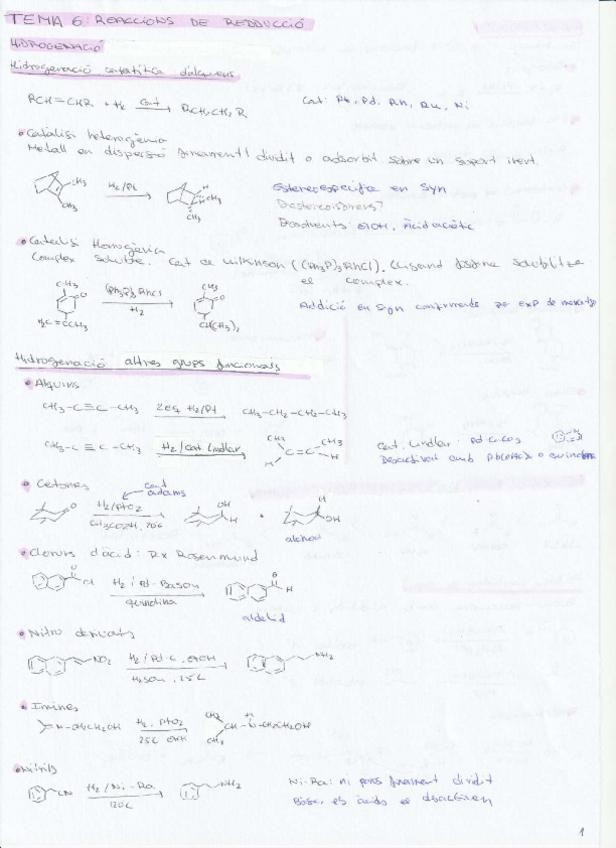 TEMA 6: REACCIONS DE REDDUCCIÓ
HIDROGENACIÓ
Hidrogenació catalítica d'alquens
RCH=CHR + H₂ Cat RCH₂CH₂R Cat: Pt, Pd, Rh, Ru, Ni
Catàlisi heterogènia
Metall en dispersió finament dividit o adsorbit sobre un suport inert.
CH₃ CH₃ H₂/Pt CH₃ CH₃ H H
Estereoespecífica en syn
Diastereoisòmers?
Dissolvents: EtOH, Àcid acètic
Catàlisi Homogènia
Complex soluble. Cat de Wilkinson ((Ph₃P)₃RhCl). Lligand fosfina solubilitza
el complex.
CH₃ O H₃C CH₃ (Ph₃P)₃RhCl H₂ CH₃ O CH(CH₃)₂
Addició en syn
Hidrogenació altres grups funcionals
Alquins
CH₃-C≡C-CH₃ 2eq H₂/Pt CH₃-CH₂-CH₂-CH₃
CH₃-C≡C-CH₃ H₂/Cat. Lindlar CH₃ H C=C CH₃ H
Cat. Lindlar: Pd-CaCO₃
Desactivat amb Pb(OAc)₂ o quinolina
Cetones
cat adams
O H₂/PtO₂ OH H + H OH
alcohol
Clorurs d'àcid: Rx Rosenmund
O Cl H₂/Pd-BaSO₄ quinolina O H
aldehid
Nitro derivats
NO₂ H₂/Pd-C, EtOH H₂SO₄, 25C NH₂
Imines
N-CH₂CH₂OH H₂, PtO₂ 25C EtOH CH₃ CH₃ CH-N-CH₂CH₂OH H
Nitrils
CN H₂/Ni-Ra 120C NH₂
Ni-Ra: ni finament dividit
1